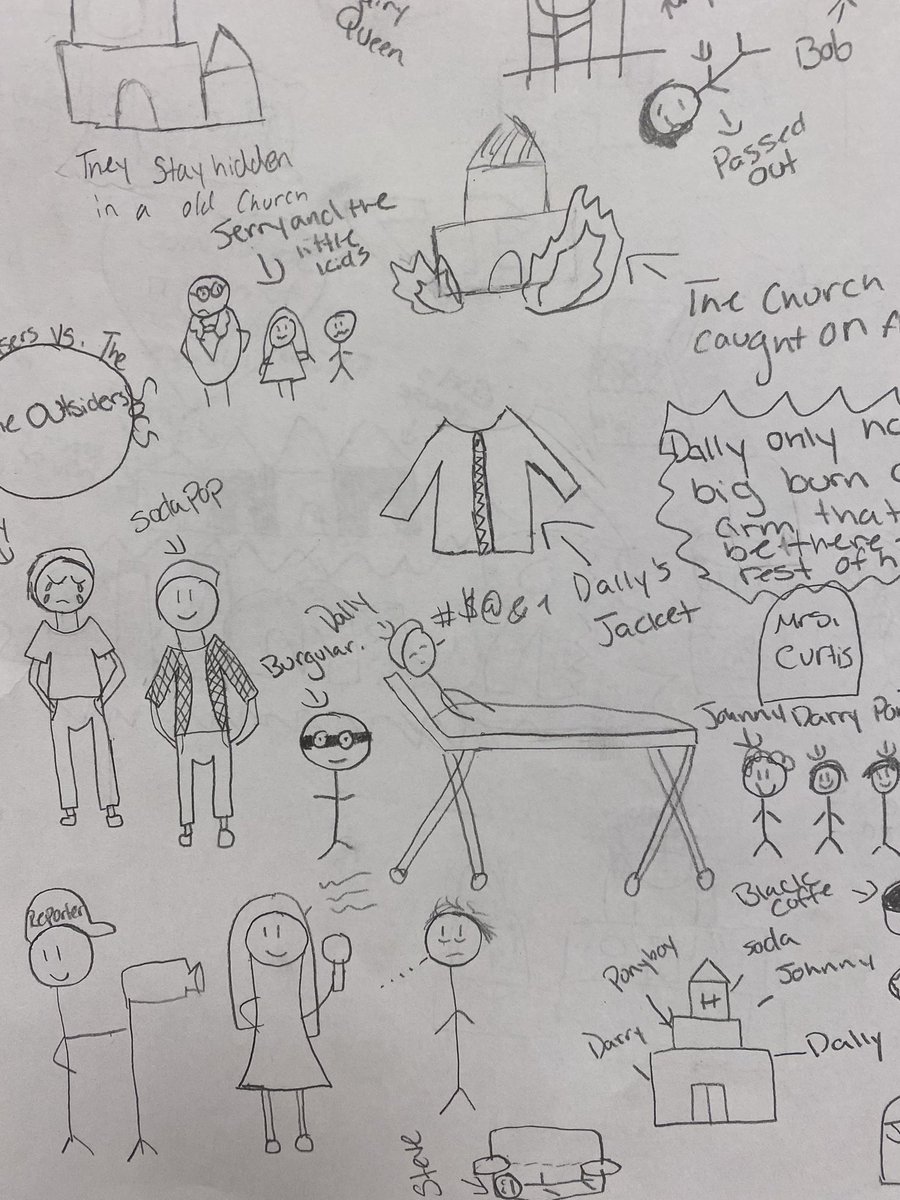 Queen
Bob
Passed
out
They Stay hidden
in a old Church
Jerry and the
little
kids
The Church
caught on
Vs. The
Socs
Outsiders
Dally only
big burn
arm that
be there
rest of
Soda Pop
Dally's
Jacket
#$@&1
Dally
Burgular.
Mrs.
Curtis
Johnny Darry
Black
coffe
Reporter
Ponyboy
soda
Johnny
H
Darry
Dally
Steve